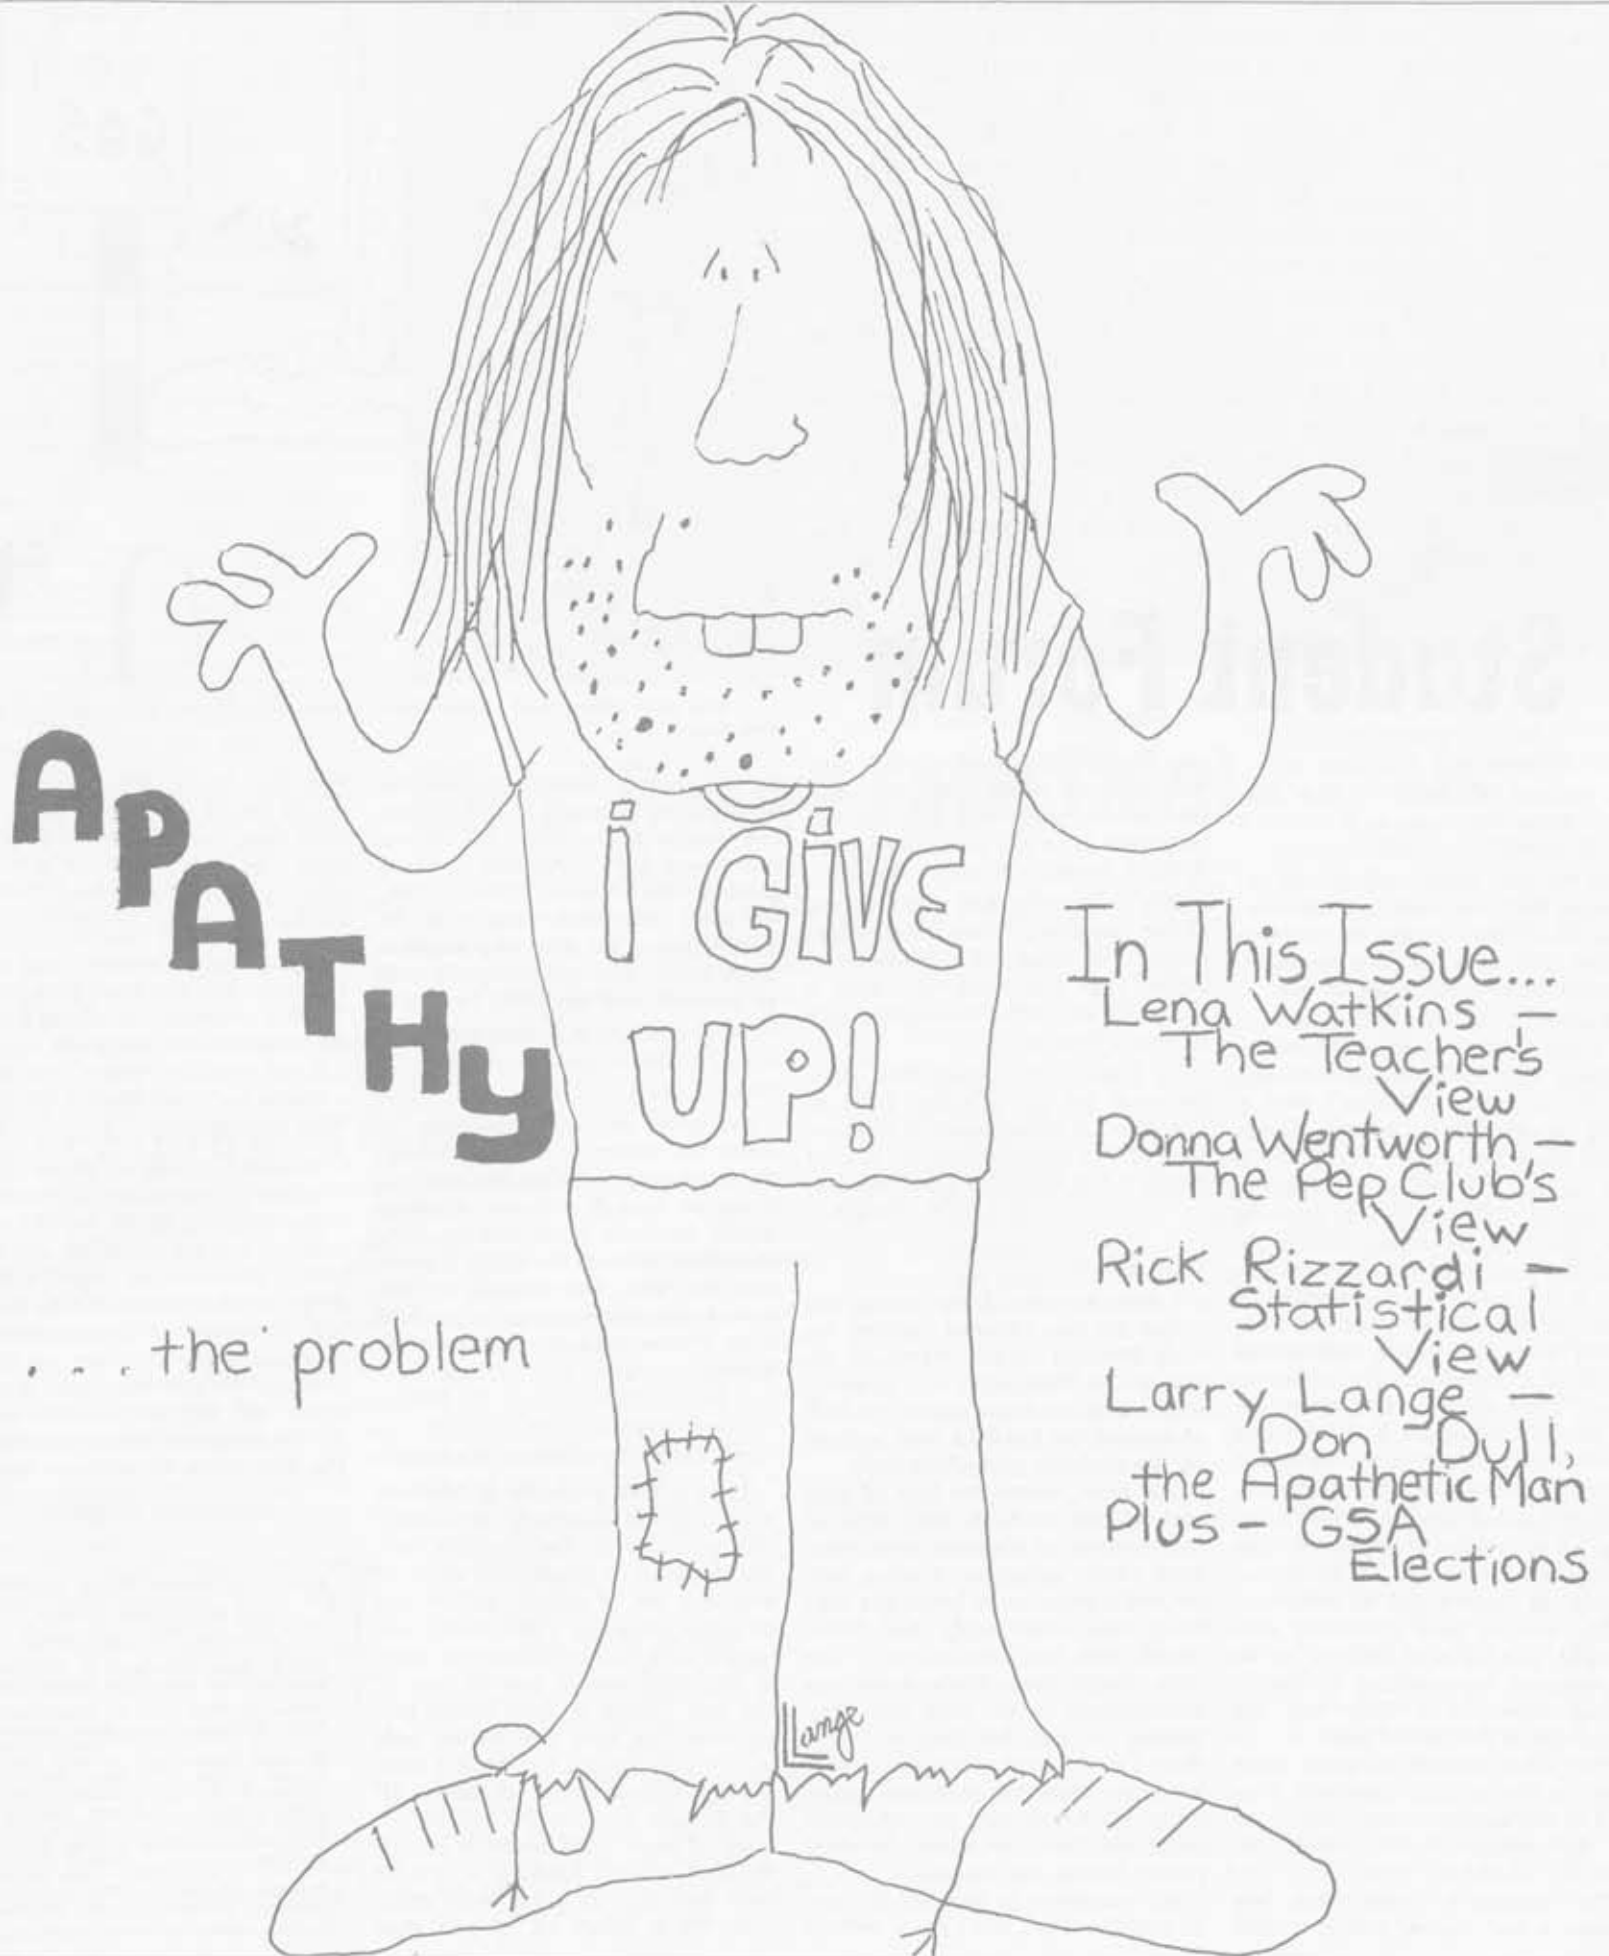 APATHY
i GiVE
UP!
. . . . the problem
In This Issue...
Lena Watkins -
The Teacher's
View
Donna Wentworth -
The Pep Club's
View
Rick Rizzardi -
Statistical
View
Larry Lange -
Don Dull,
the Apathetic Man
Plus - GSA
Elections
LLange
Student Forum